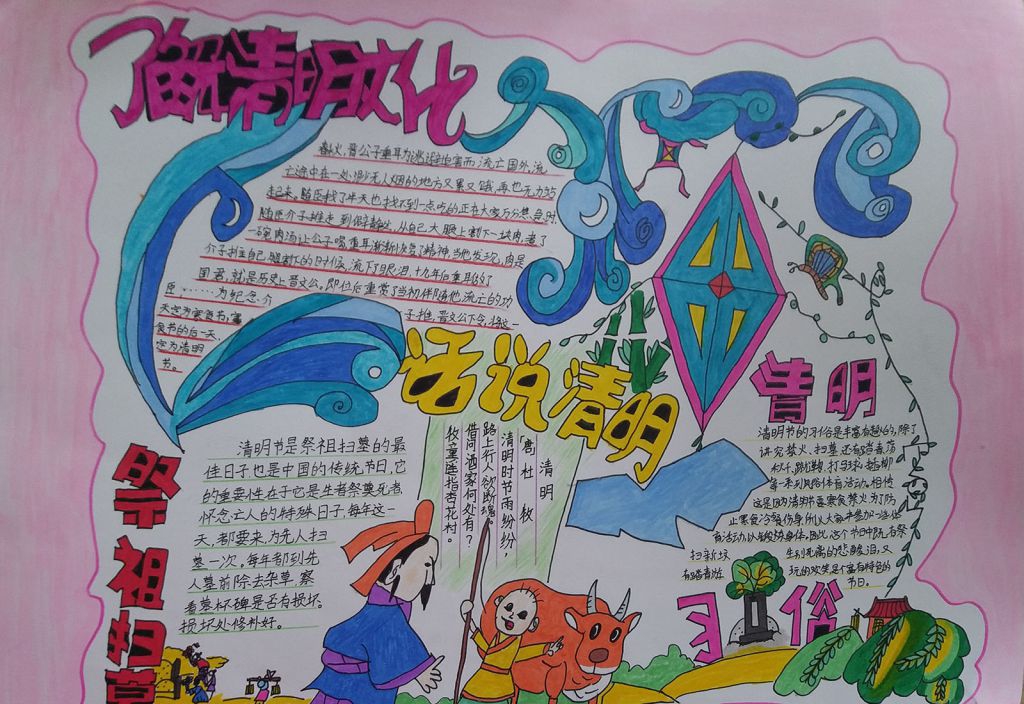 了解清明文化
春火,晋公子重耳为逃避迫害而流亡国外,流
亡途中在一处渺无人烟的地方又累又饿,再也无力站
起来。随臣找了半天也找不到一点吃的正在大家万分焦急时,
随臣介子推走到僻静处,从自己大腿上割下一块肉,煮了
一碗肉汤让公子喝重耳渐渐恢复了精神,当他发现,肉是
介子推自己腿割下的时候,流下了眼泪,十九年后重耳做了
国君,就是历史晋文公。即位后重赏了当初伴随他流亡的功
臣………为纪念介子推,晋文公下令,将这一
天定为寒食节,寒
食节的后一天,
定为清明
节。
话说清明
清明
「唐」杜牧
清明时节雨纷纷,
路上行人欲断魂。
借问酒家何处有?
牧童遥指杏花村。
祭祖扫墓
清明节是祭祖扫墓的最
佳日子也是中国的传统节日,它
的重要性在于它是生者祭奠死者,
怀念亡人的特殊日子每年这一
天,都要来为先人扫
墓一次,每年都到先
人墓前除去杂草,察
看墓杯碑是否有损坏。
损坏处修补好。
清明
清明节的习俗是丰富有趣的,除了
讲究禁火、扫墓还有踏青荡
秋千、踢蹴鞠、打马球、插柳
等一系列风俗体育活动。相传
这是因为清明节要寒食禁火为了防
止寒食冷餐伤身,所以大家来参加一些体
育活动,以锻炼身体。因此,这个节日中既有祭
扫新坟生别死离的悲酸泪,又
有踏青游玩的欢笑是个富有特色的
节日。
习俗